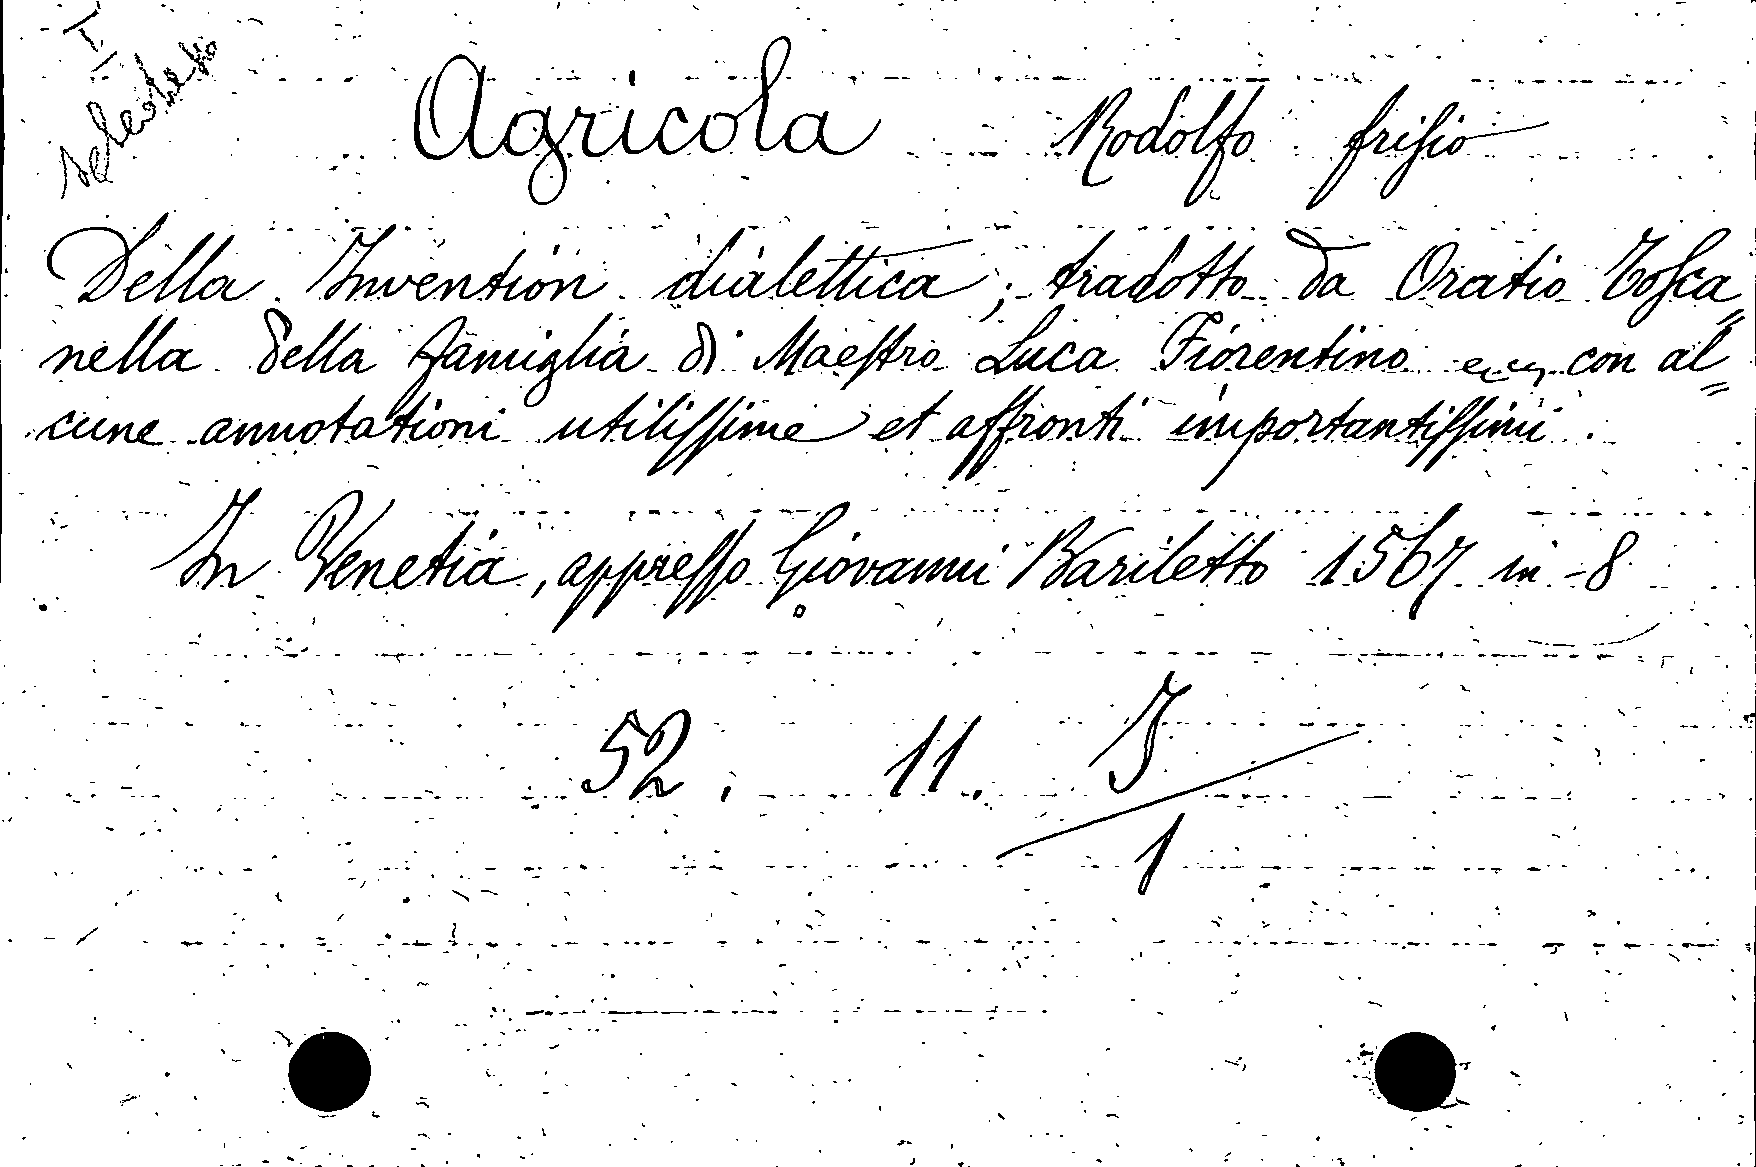 I
Agricola Rodolfo friſio
Della Invention dialettica; tradotto da Oratio Toſca„
nella della famiglia di Maeſtro Luca Fiorentino con al„
cune annotationi utiliſſime et affronti importantiſſimi.
In Venetia, appreſſo Giovanni Bariletto 1567 in -8°
52. 11. I/1